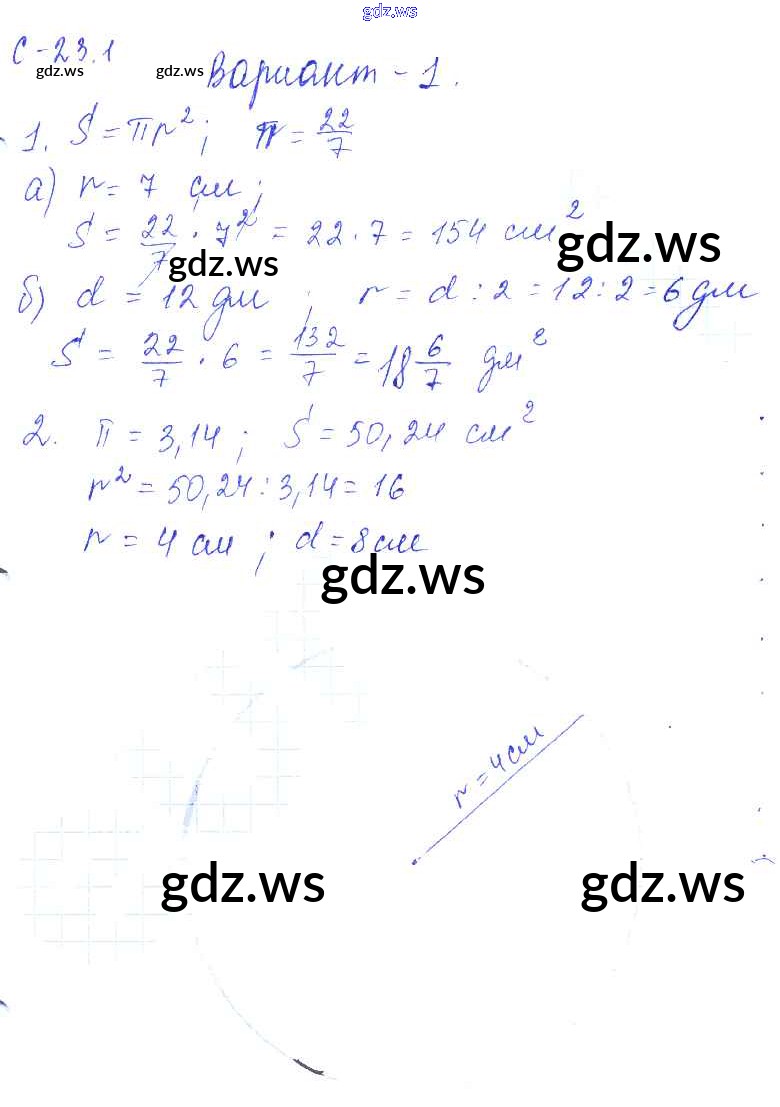 gdz.ws
С-23.1
gdz.ws gdz.ws Вариант - 1.
1. S = πr²; π = 22/7
а) r = 7 см;
S = 22/7 · 7² = 22 · 7 = 154 см²
gdz.ws
gdz.ws
б) d = 12 дм; r = d : 2 = 12 : 2 = 6 дм
S = 22/7 · 6 = 132/7 = 18 6/7 дм²
2. π = 3,14; S = 50,24 см²
r² = 50,24 : 3,14 = 16
r = 4 см; d = 8 см
gdz.ws
r = 4 см
gdz.ws gdz.ws